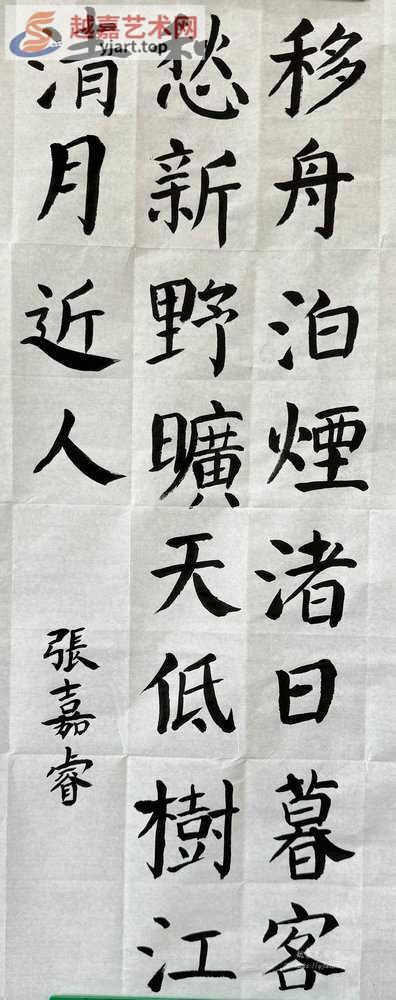 越嘉艺术网
yjart.top
移舟泊煙渚日暮客
愁新野曠天低樹江
清月近人
張嘉睿